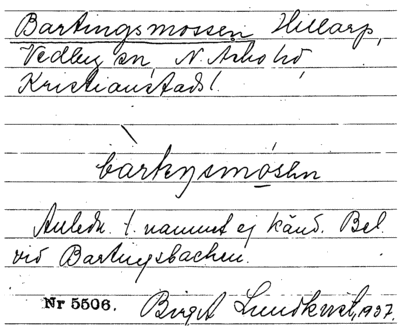 Bartingsmossen Hillarp,
Vedby sn, N. Åsbo hd
Kristianstads l.
bàrtiŋsmósen
Anledn. t. namnet ej känd. Bel.
vid Bartingsbacken.
Nr 5506. Birgit Lundkvist, 1937.